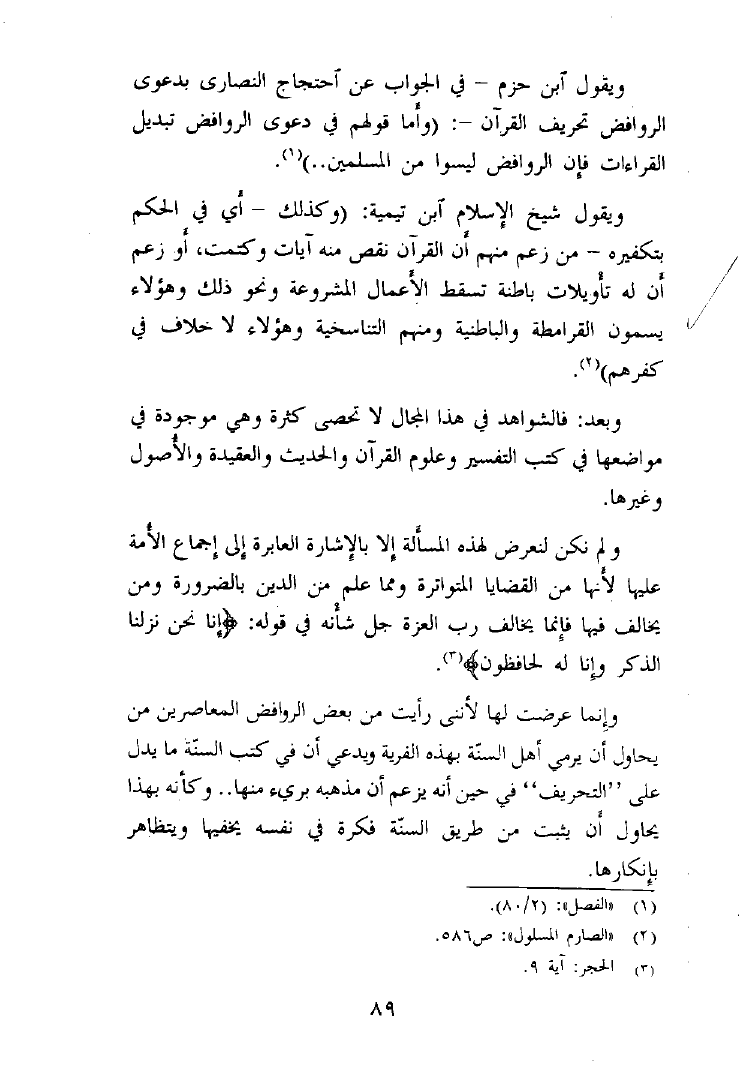 ويقول ٱبن حزم – في الجواب عن ٱحتجاج النصارى بدعوى
الروافض تحريف القرآن –: (وأما قولهم في دعوى الروافض تبديل
القراءات فإن الروافض ليسوا من المسلمين..)(١).
ويقول شيخ الإسلام ٱبن تيمية: (وكذلك – أي في الحكم
بتكفيره – من زعم منهم أن القرآن نقص منه آيات وكتمت، أو زعم
أن له تأويلات باطنة تسقط الأعمال المشروعة ونحو ذلك وهؤلاء
يسمون القرامطة والباطنية ومنهم التناسخية وهؤلاء لا خلاف في
كفرهم)(٢).
وبعد: فالشواهد في هذا المجال لا تحصى كثرة وهي موجودة في
مواضعها في كتب التفسير وعلوم القرآن والحديث والعقيدة والأصول
وغيرها.
ولم نكن لنعرض لهذه المسألة إلا بالإشارة العابرة إلى إجماع الأمة
عليها لأنها من القضايا المتواترة ومما علم من الدين بالضرورة ومن
يخالف فيها فإنما يخالف رب العزة جل شأنه في قوله: ﴿إنا نحن نزلنا
الذكر وإنا له لحافظون﴾(٣).
وإنما عرضت لها لأننى رأيت من بعض الروافض المعاصرين من
يحاول أن يرمي أهل السنّة بهذه الفرية ويدعي أن في كتب السنّة ما يدل
على ‘‘التحريف’’ في حين أنه يزعم أن مذهبه بريء منها.. وكأنه بهذا
يحاول أن يثبت من طريق السنّة فكرة في نفسه يخفيها ويتظاهر
بإنكارها.
(١) «الفصل»: (٨٠/٢).
(٢) «الصارم المسلول»: ص٥٨٦.
(٣) الحجر: آية ٩.
٨٩